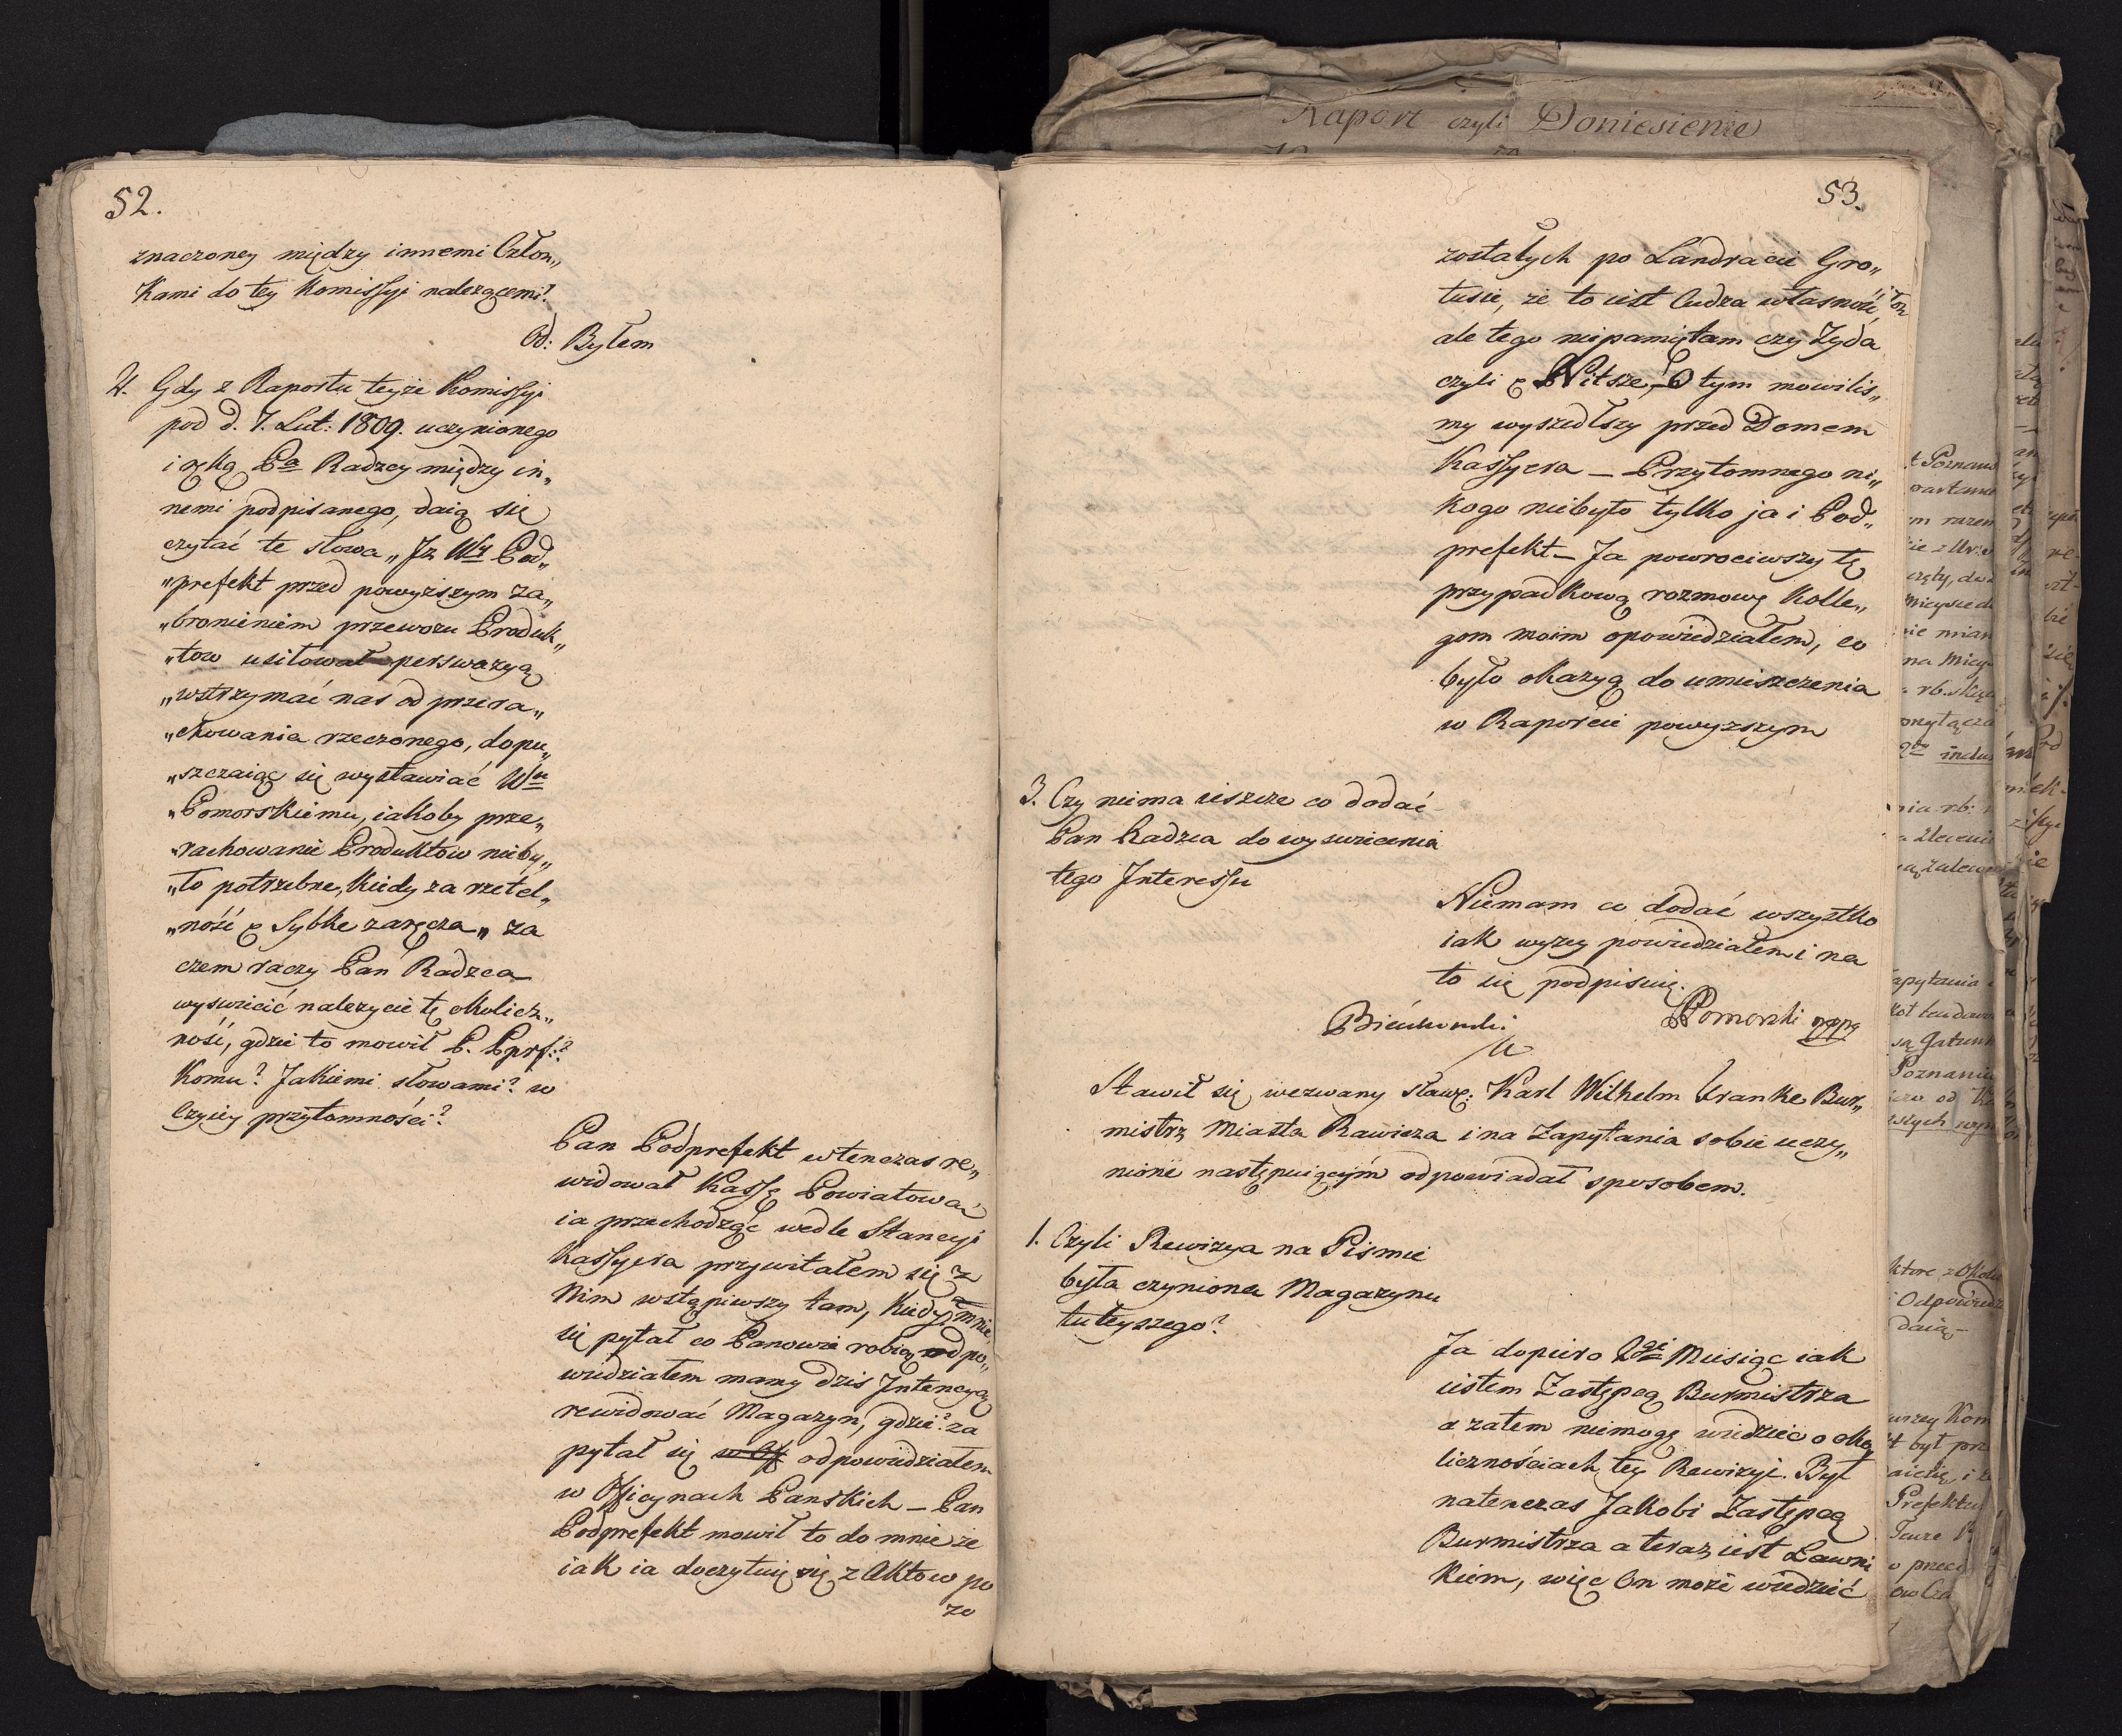 52.
znaczoney między innemi Człon„
kami do tey Komissyi należącemi?
Od: Byłem
2. Gdy z Raportu teyże Komissyi
pod d. 7. Lut: 1809. uczynionego
i ręką Pa Radzcy między in„
nemi podpisanego, daią się
czytać te słowa „Iz Wy Pod„
„prefekt przed powyższym za„
„bronieniem przewozu Produk„
„tow usiłował perswazyą
„wstrzymać nas od przera„
„chowania rzeczonego, dopu„
„szczaiąc się wystawiać Wu
„Pomorskiemu, iakoby prze„
„rachowanie Produktow nieby„
„ło potrzebne, kiedy za rzetel„
„ność P Sybke zaręcza„ za
czem raczy Pan Radzca
wyswiecić należycie tę okolicz„
ność, gdzie to mowił P. Pprf:?
Komu? Jakiemi słowami? w
Czyiey przytomności?
Pan Podprefekt wtenczas re„
widował Kassę Powiatową
ia przechodząc wedle Stancyi
Kassyera przywitałem się z
Nim wstąpiwszy tam, kiedy mnie
się pytał co Panowie robią odpo„
wiedziałem mamy dzis Intencyą
rewidować Magazyn, gdzie? za
pytał się odpowiedziałem
w Oficynach Panskich – Pan
Podprefekt mowił to do mnie że
iak ia doczytuię się z Aktow po
zo
53.
zostałych po Landracie Gro„
tusie, że to iest Cudza własność,
ale tego niepamiętam czy Żyda
czyli P Nitsze, O tym mowilis„
my wyszedłszy przed Domem
Kassyera – Przytomnego ni„
kogo niebyło tylko ja i Pod„
prefekt – Ja powrociwszy tę
przypadkową rozmowę Kolle„
gom moim opowiedziałem, co
było okazyą do umieszczenia
w Raporcie powyzszym
3. Czy niema ieszcze co dodać
Pan Radzca do wyswiecenia
tego Interessu
Niemam co dodać wszystko
iak wyzey powiedziałem i na
to się podpisuię.
Pomorski mppa
Bienkowski
Stawił się wezwany sławe: Karl Wilhelm Franke Bur„
mistrz Miasta Rawicza i na Zapytania sobie uczy„
nione następuiącym odpowiadał sposobem.
1. Czyli Rewizya na Pismie
była czyniona Magazynu
tuteyszego?
Ja dopiero 2gi Miesiąc iak
iestem Zastępcą Burmistrza
a zatem niemogę wiedzieć o oko
licznościach tey Rewizyi. Był
natenczas Jakobi Zastępcą
Burmistrza a teraz iest Ławni
kiem, więc On może wiedzieć
Raport czyli Doniesienie